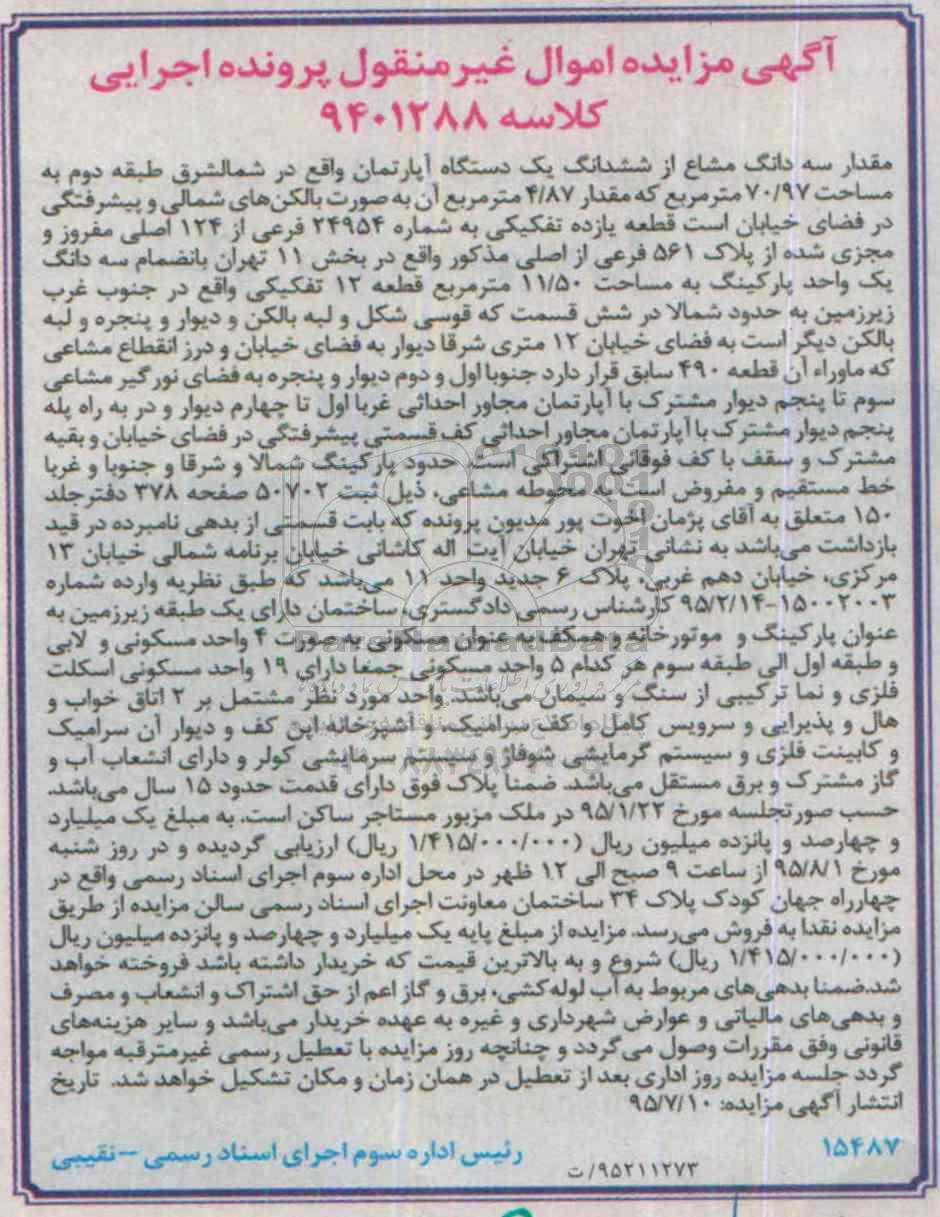 آگهی مزایده اموال غیرمنقول پرونده اجرایی
کلاسه ۹۴۰۱۲۸۸
مقدار سه دانگ مشاع از ششدانگ یک دستگاه آپارتمان واقع در شمالشرق طبقه دوم به
مساحت ۷۰/۹۷ مترمربع که مقدار ۴/۸۷ مترمربع آن به صورت بالکن‌های شمالی و پیشرفتگی
در فضای خیابان است قطعه یازده تفکیکی به شماره ۲۴۹۵۴ فرعی از ۱۲۴ اصلی مفروز و
مجزی شده از پلاک ۵۶۱ فرعی از اصلی مذکور واقع در بخش ۱۱ تهران بانضمام سه دانگ
یک واحد پارکینگ به مساحت ۱۱/۵۰ مترمربع قطعه ۱۲ تفکیکی واقع در جنوب غرب
زیرزمین به حدود شمالا در شش قسمت که قوسی شکل و لبه بالکن و دیوار و پنجره و لبه
بالکن دیگر است به فضای خیابان ۱۲ متری شرقا دیوار به فضای خیابان و درز انقطاع مشاعی
که ماوراء آن قطعه ۴۹۰ سابق قرار دارد جنوبا اول و دوم دیوار و پنجره به فضای نورگیر مشاعی
سوم تا پنجم دیوار مشترک با آپارتمان مجاور احداثی غربا اول تا چهارم دیوار و در به راه پله
پنجم دیوار مشترک با آپارتمان مجاور احداثی کف قسمتی پیشرفتگی در فضای خیابان و بقیه
مشترک و سقف با کف فوقانی اشتراکی است. حدود پارکینگ شمالا و شرقا و جنوبا و غربا
خط مستقیم و مفروض است به محوطه مشاعی، ذیل ثبت ۵۰۷۰۲ صفحه ۳۷۸ دفترجلد
۱۵۰ متعلق به آقای پژمان اخوت پور مدیون پرونده که بابت قسمتی از بدهی نامبرده در قید
بازداشت می‌باشد به نشانی تهران خیابان آیت اله کاشانی خیابان برنامه شمالی خیابان ۱۳
مرکزی، خیابان دهم غربی، پلاک ۶ جدید واحد ۱۱ می‌باشد که طبق نظریه وارده شماره
۱۵۰۰۲۰۰۳-۹۵/۲/۱۴ کارشناس رسمی دادگستری، ساختمان دارای یک طبقه زیرزمین به
عنوان پارکینگ و موتورخانه و همکف به عنوان مسکونی به صورت ۴ واحد مسکونی و لابی
و طبقه اول الی طبقه سوم هر کدام ۵ واحد مسکونی جمعا دارای ۱۹ واحد مسکونی اسکلت
فلزی و نما ترکیبی از سنگ و سیمان می‌باشد. واحد مورد نظر مشتمل بر ۲ اتاق خواب و
هال و پذیرایی و سرویس کامل و کف سرامیک، و آشپزخانه اپن کف و دیوار آن سرامیک
و کابینت فلزی و سیستم گرمایشی شوفاژ و سیستم سرمایشی کولر و دارای انشعاب آب و
گاز مشترک و برق مستقل می‌باشد. ضمنا پلاک فوق دارای قدمت حدود ۱۵ سال می‌باشد.
حسب صورتجلسه مورخ ۹۵/۱/۲۲ در ملک مزبور مستاجر ساکن است. به مبلغ یک میلیارد
و چهارصد و پانزده میلیون ریال (۱/۴۱۵/۰۰۰/۰۰۰ ریال) ارزیابی گردیده و در روز شنبه
مورخ ۹۵/۸/۱ از ساعت ۹ صبح الی ۱۲ ظهر در محل اداره سوم اجرای اسناد رسمی واقع در
چهارراه جهان کودک پلاک ۳۴ ساختمان معاونت اجرای اسناد رسمی سالن مزایده از طریق
مزایده نقدا به فروش می‌رسد. مزایده از مبلغ پایه یک میلیارد و چهارصد و پانزده میلیون ریال
(۱/۴۱۵/۰۰۰/۰۰۰ ریال) شروع و به بالاترین قیمت که خریدار داشته باشد فروخته خواهد
شد.ضمنا بدهی‌های مربوط به آب لوله‌کشی، برق و گاز اعم از حق اشتراک و انشعاب و مصرف
و بدهی‌های مالیاتی و عوارض شهرداری و غیره به عهده خریدار می‌باشد و سایر هزینه‌های
قانونی وفق مقررات وصول می‌گردد و چنانچه روز مزایده با تعطیل رسمی غیرمترقبه مواجه
گردد جلسه مزایده روز اداری بعد از تعطیل در همان زمان و مکان تشکیل خواهد شد. تاریخ
انتشار آگهی مزایده: ۹۵/۷/۱۰
۱۵۴۸۷
رئیس اداره سوم اجرای اسناد رسمی – نقیبی
۹۵۲۱۱۲۷۳/ت
ParsNamadData